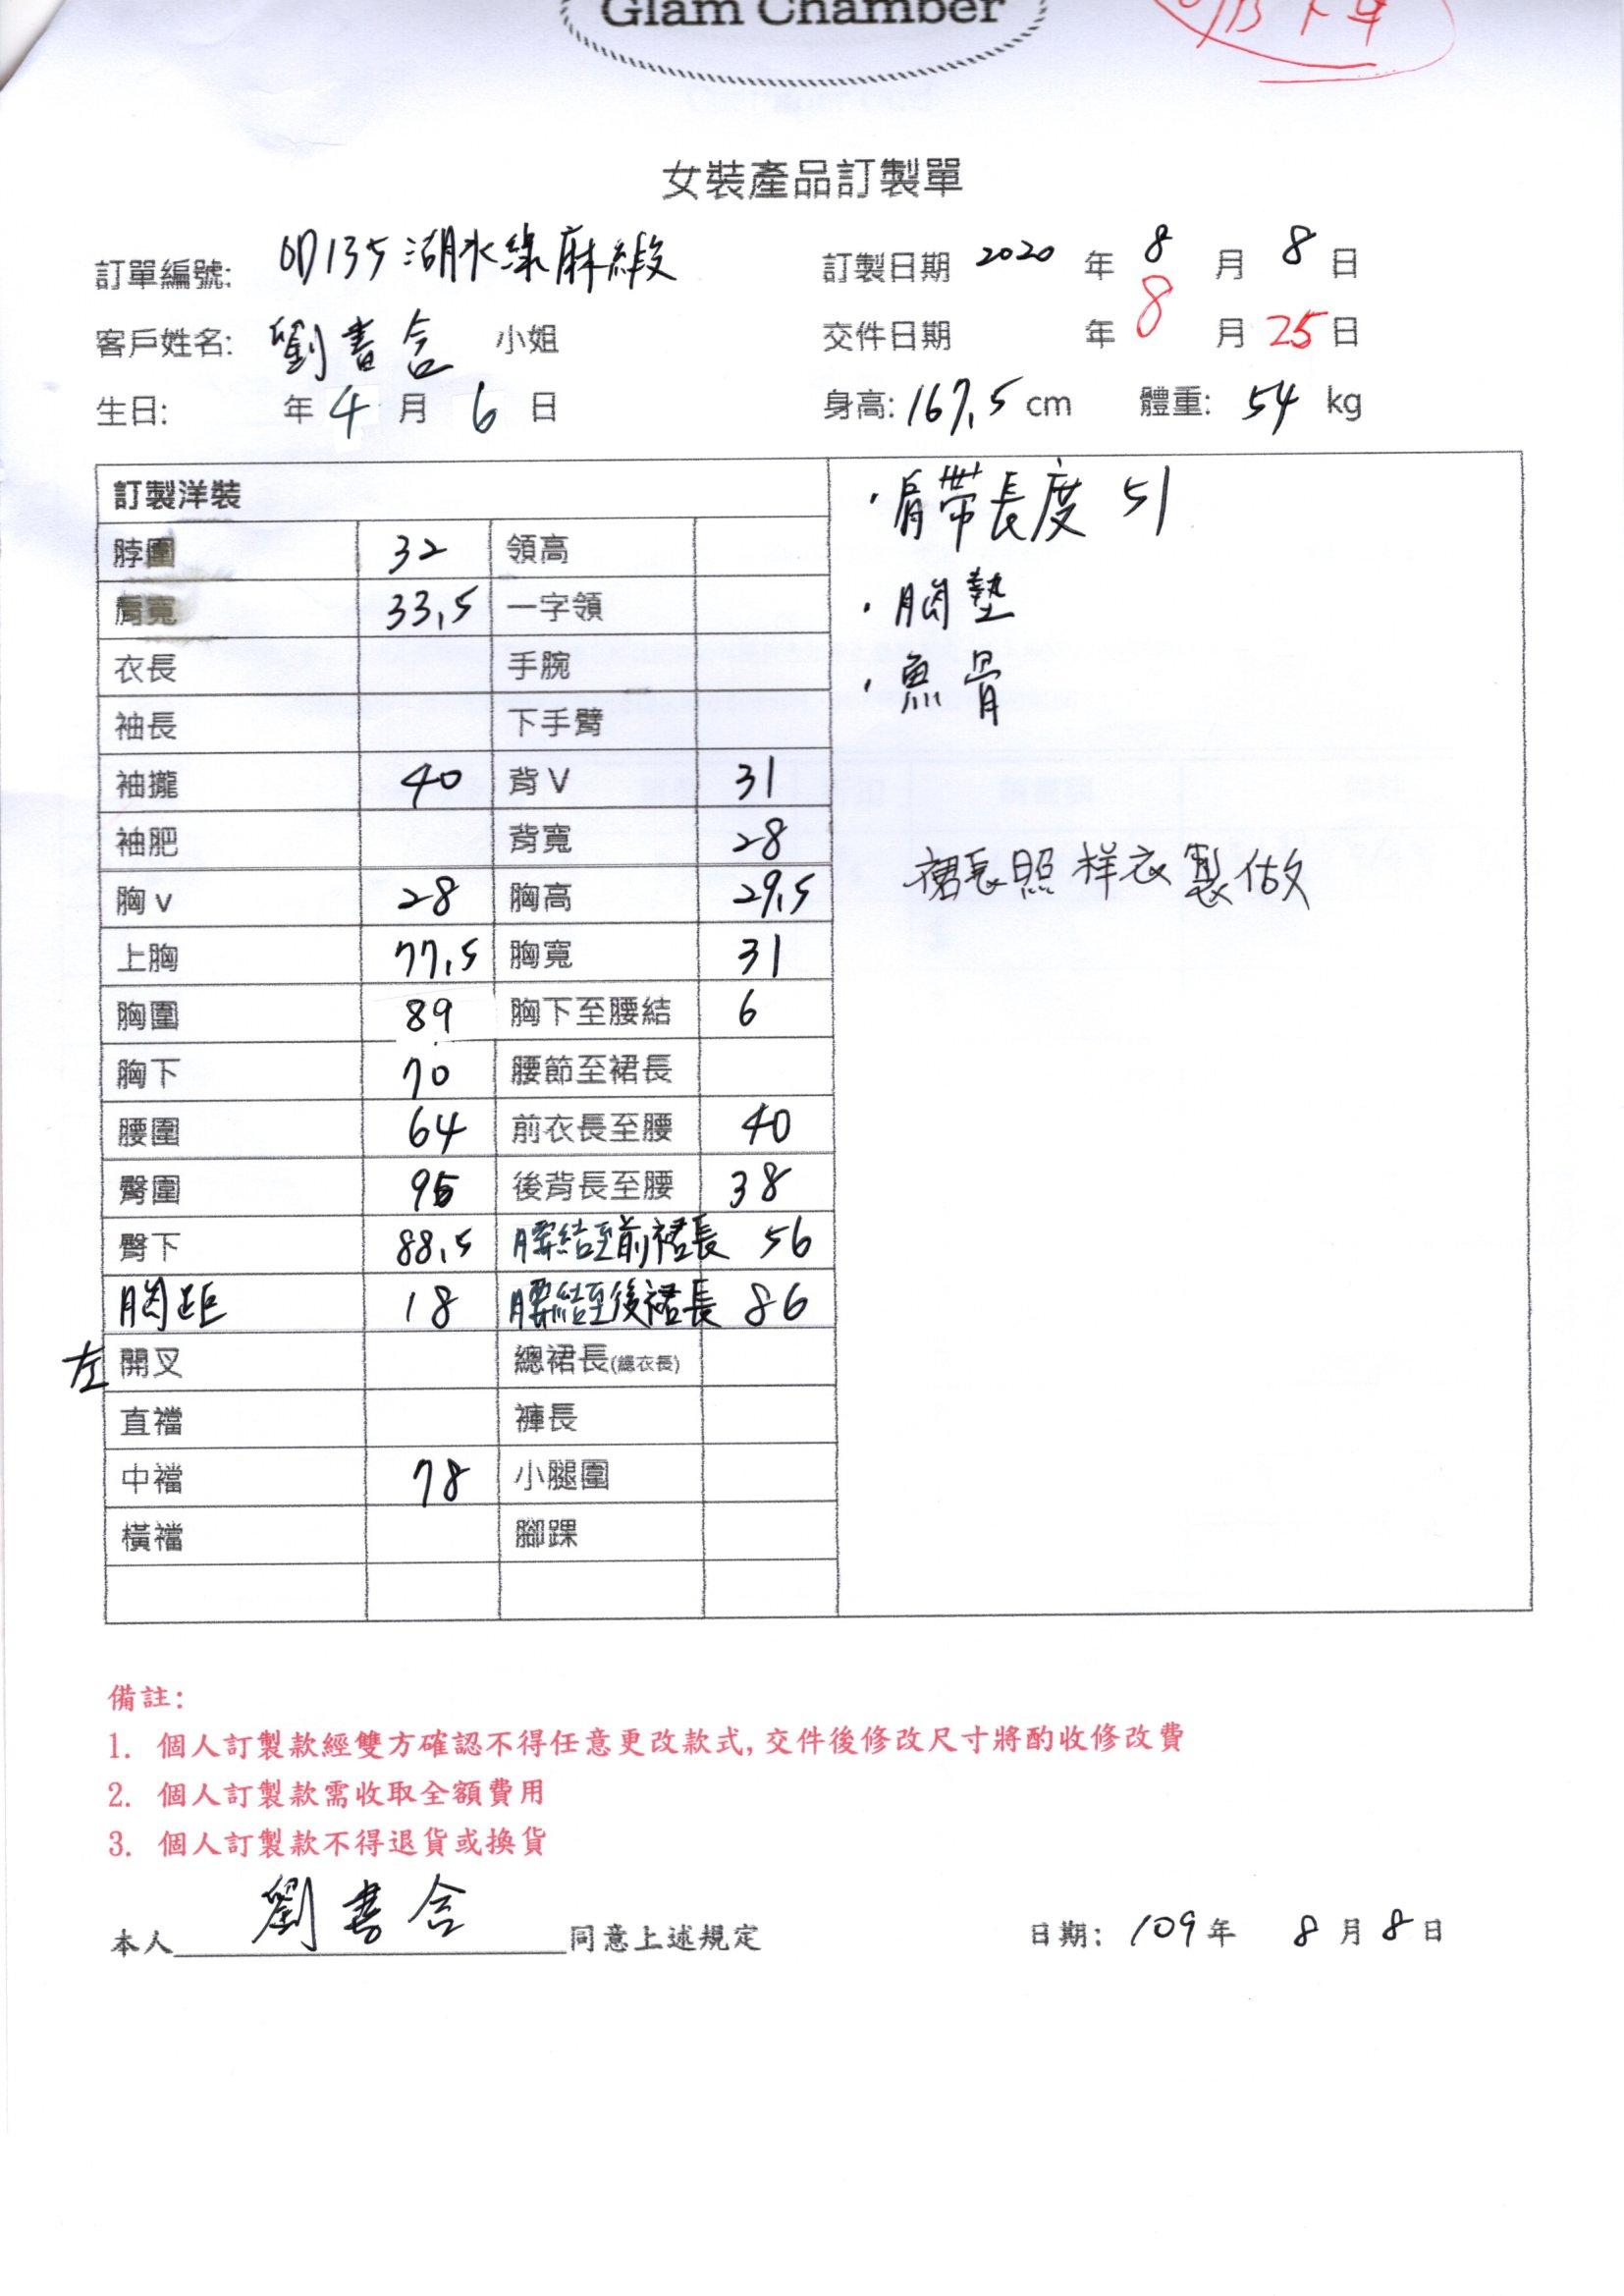 Glam Chamber
下單
女裝產品訂製單
訂單編號: OD135 湖水綠麻緞 訂製日期 2020 年 8 月 8 日
客戶姓名: 劉書含 小姐 交件日期 年 8 月 25 日
生日: 年 4 月 6 日 身高: 167.5 cm 體重: 54 kg
訂製洋裝
脖圍 32 領高
肩寬 33.5 一字領
衣長 手腕
袖長 下手臂
袖攏 40 背V 31
袖肥 背寬 28
胸v 28 胸高 29.5
上胸 77.5 胸寬 31
胸圍 89 胸下至腰結 6
胸下 70 腰節至裙長
腰圍 64 前衣長至腰 40
臀圍 95 後背長至腰 38
臀下 88.5 腰結至前裙長 56
胸距 18 腰結至後裙長 86
左 開叉 總裙長(總衣長)
直襠 褲長
中襠 78 小腿圍
橫襠 腳踝
·肩帶長度 51
·胸墊
·魚骨
裙長照样衣製做
備註:
1. 個人訂製款經雙方確認不得任意更改款式, 交件後修改尺寸將酌收修改費
2. 個人訂製款需收取全額費用
3. 個人訂製款不得退貨或換貨
本人 劉書含 同意上述規定 日期: 109 年 8 月 8 日